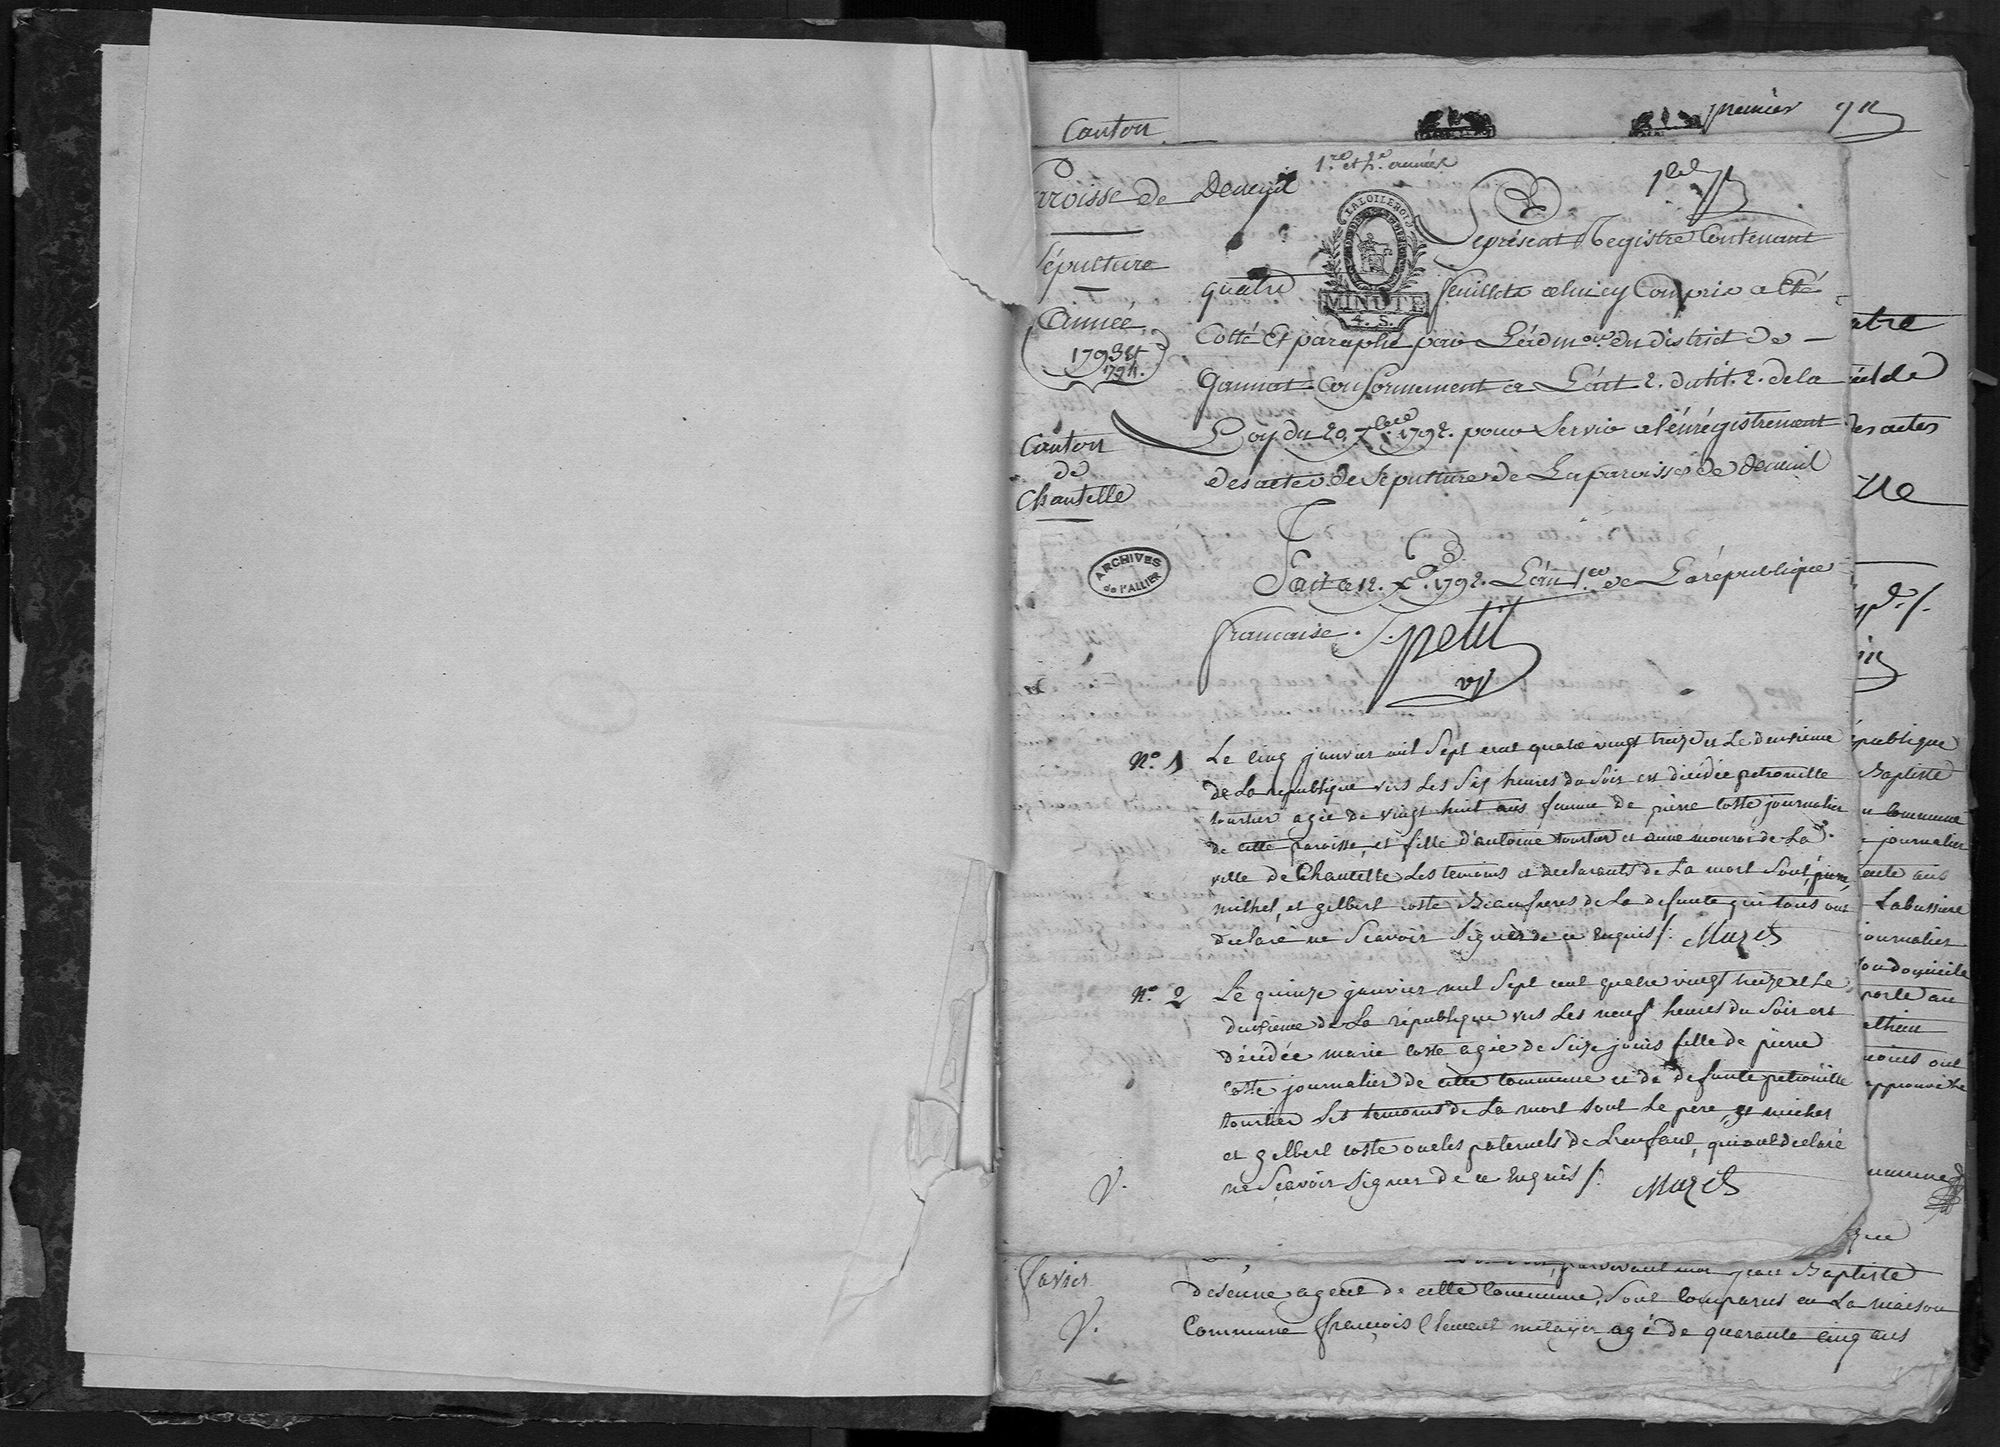 Canton
premier
1re et 2e année
Paroisse de Deneuil
Sépulture
Année
1793 et
1794.
Canton
de
Chantelle
LA LOI LE ROI
MINUTE
4. S.
Le présent Registre Contenant
quatre feuillets celuicy Compris a Eté
Cotté Et paraphé par L'adm.on du district de
Gannat Conformement a L'art 2. du tit. 2. de la
Loy du 20. 7bre 1792. pour Servir a l'énrégistrement
des actes de Sépulture de La paroisse de Deneuil
Fait a 12. Xbre 1792. L'an 1er de La république
francaise.
Petit
ARCHIVES
de l'ALLIER
No. 1 Le Cinq janvier mil Sept cent quatre vingt treize et Le deuxieme
de La republique vers Les Six heures du Soir est dicédée petronille
tourtier agée de vingt huit ans femme de pierre Coste journalier
de cette paroisse, et fille d'antoine tourtier et anne de La
ville de Chantelle Les temoins et declarants de La mort Sont, pierre,
michel, et gilbert Coste Beaufreres de La defunte qui tous ont
declaré ne Scavoir Signer de ce requis /. Mazet
No. 2 Le quinze janvier mil Sept cent quatre vingt treize et Le
deuxieme de La république vers Les neuf heures du Soir est
décédée marie Coste agée de Seize jours fille de pierre
Coste journalier de cette Commune et de defunte petronille
tourtier Les temoins de La mort sont Le pere, et michel
et gilbert Coste oncles paternels de L'enfant, qui ont declaré
ne Scavoir Signer de ce requis /. Mazet
V.
des actes
république
Baptiste
Commune
journalier
Labussiere
journalier
Son domicile
favier
jean Baptiste
agent de cette Commune, Sont Comparus en La maison
V.
Commune françois Clement metayer agé de quarante cinq ans